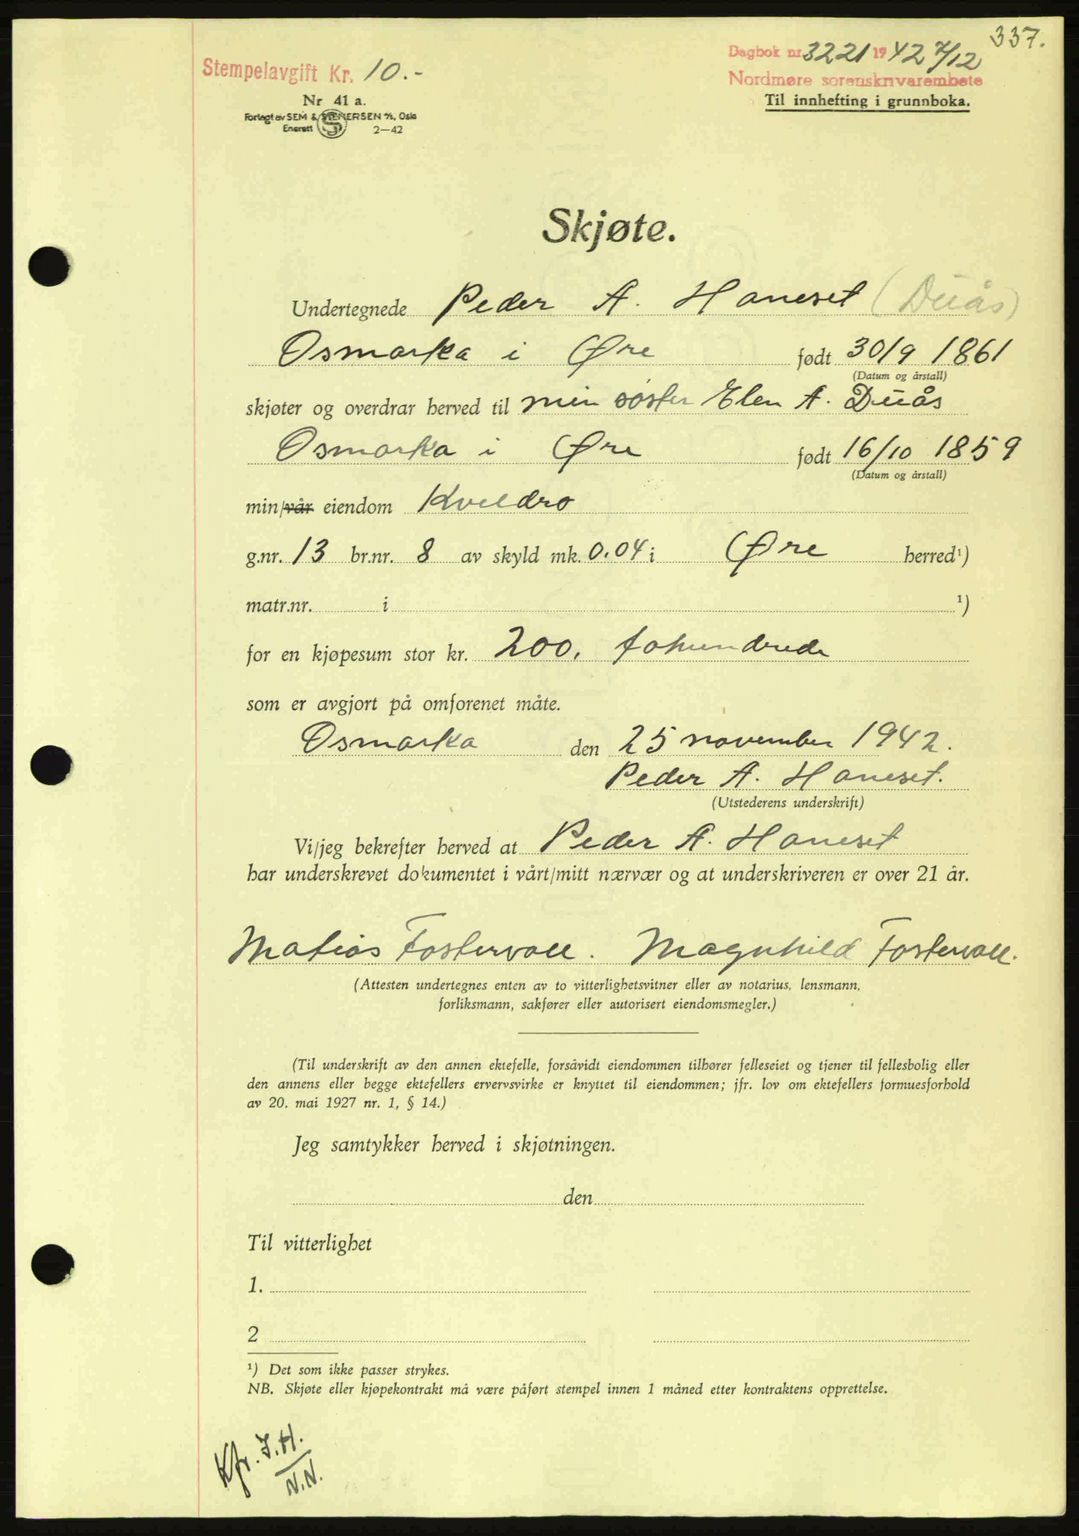 337.
Stempelavgift Kr. 10.-
Dagbok nr. 3221 1942 7/12
Nordmøre sorenskrivarembete
Nr 41 a.
Til innhefting i grunnboka.
Forlagt av SEM & STENERSEN A/S, Oslo
Enerett 2—42
Skjøte.
Undertegnede Peder A. Haneset (Duås)
Osmarka i Øre født 30/9 1861
(Datum og årstall)
skjøter og overdrar herved til min søster Elen A. Duås
Osmarka i Øre født 16/10 1859
(Datum og årstall)
min/vår eiendom Kveldro
g.nr. 13 br.nr. 8 av skyld mk. 0.04 i Øre herred¹)
matr.nr. i ¹)
for en kjøpesum stor kr. 200. tohundrede
som er avgjort på omforenet måte.
Osmarka den 25 november 1942.
Peder A. Haneset.
(Utstederens underskrift)
Vi/jeg bekrefter herved at Peder A. Haneset
har underskrevet dokumentet i vårt/mitt nærvær og at underskriveren er over 21 år.
Matias Fostervoll. Magnhild Fostervoll.
(Attesten undertegnes enten av to vitterlighetsvitner eller av notarius, lensmann,
forliksmann, sakfører eller autorisert eiendomsmegler.)
(Til underskrift av den annen ektefelle, forsåvidt eiendommen tilhører felleseiet og tjener til fellesbolig eller
den annens eller begge ektefellers ervervsvirke er knyttet til eiendommen; jfr. lov om ektefellers formuesforhold
av 20. mai 1927 nr. 1, § 14.)
Jeg samtykker herved i skjøtningen.
den
Til vitterlighet
1.
2
¹) Det som ikke passer strykes.
NB. Skjøte eller kjøpekontrakt må være påført stempel innen 1 måned etter kontraktens opprettelse.
Kfr. I.H.
N.N.